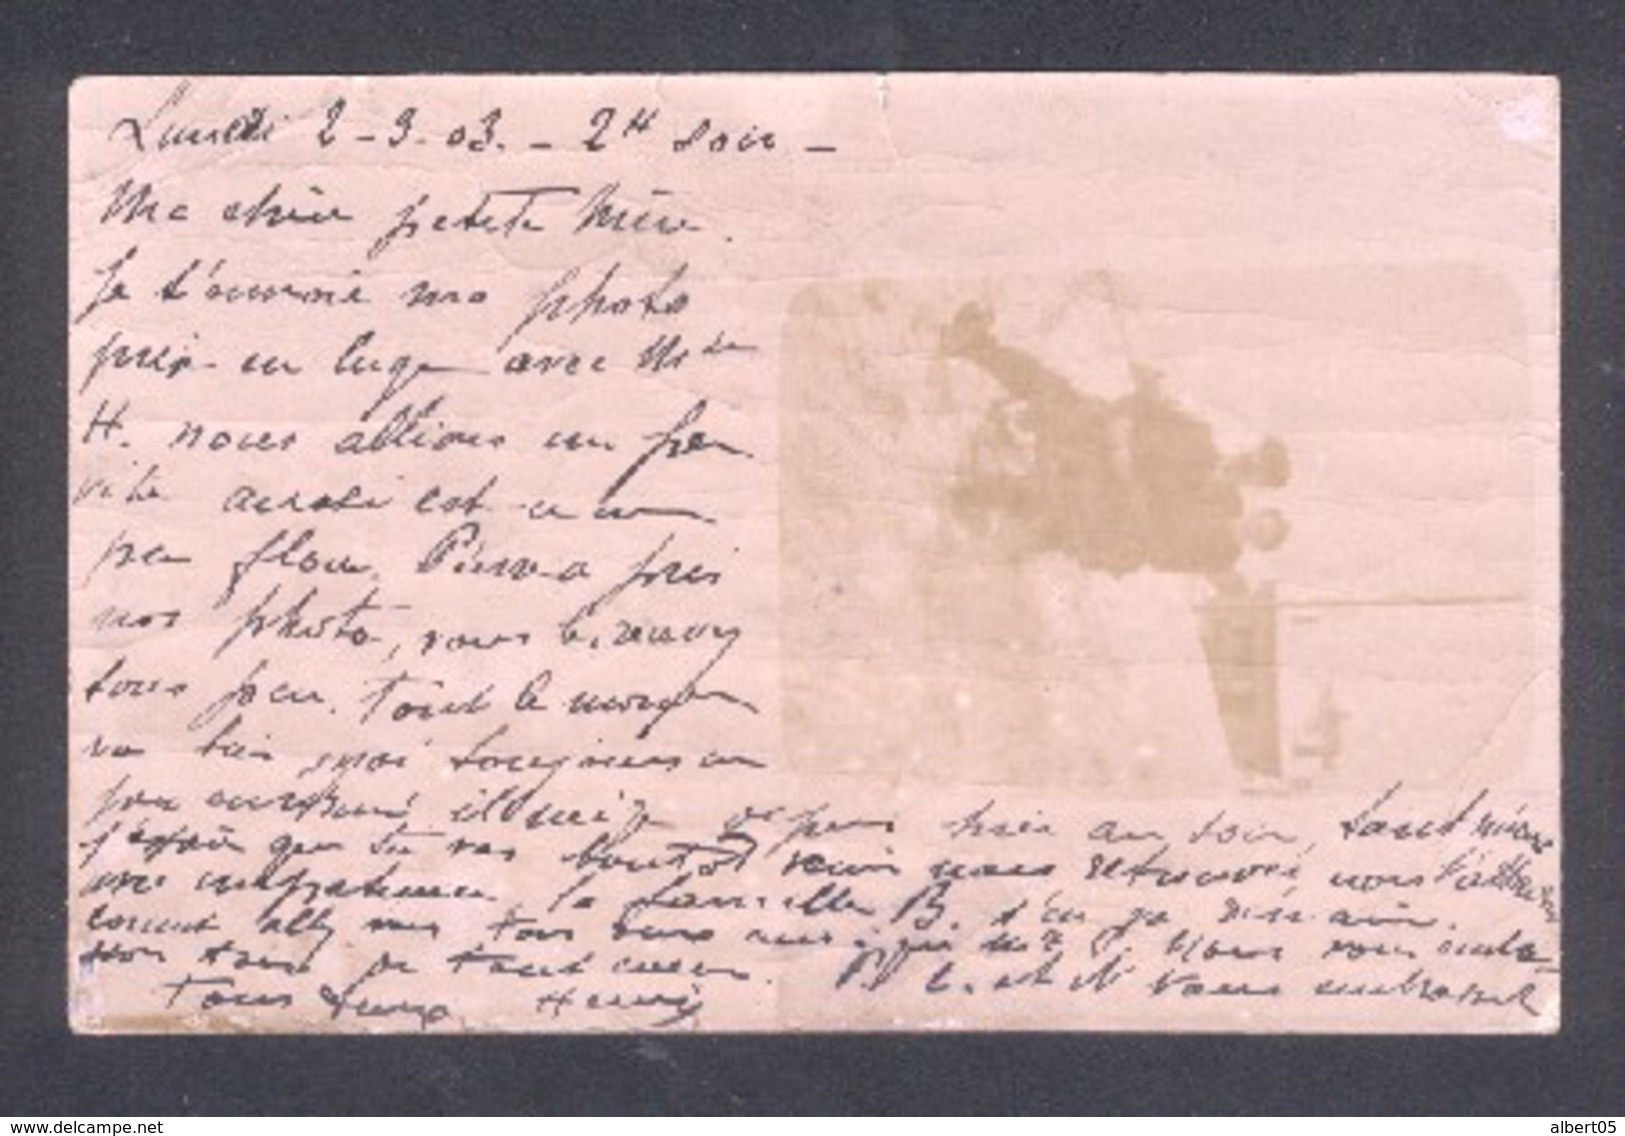 Lundi 2-3-03. - 2H soir -
Ma chère petite Mère.
Je t'envoie ma photo
prise en luge avec Mde
H. nous allions un peu
vite aussi est-ce un
peu floue. Pierre a pris
nos photo, vous le recevez
tous peu. Tout le monde
va bien, moi toujours un
peu enrhumé, il neige depuis hier au soir, tant mieux
j'espère que tu vas bientôt venir nous retrouver, nous t'attendons
avec impatience la famille B. s'en va demain.
Comment allez vous tous deux Nous vous embras-
sons tous de tout cœur. P. L. et M vous embrassent
Tous deux Henri
www.delcampe.net
albert05